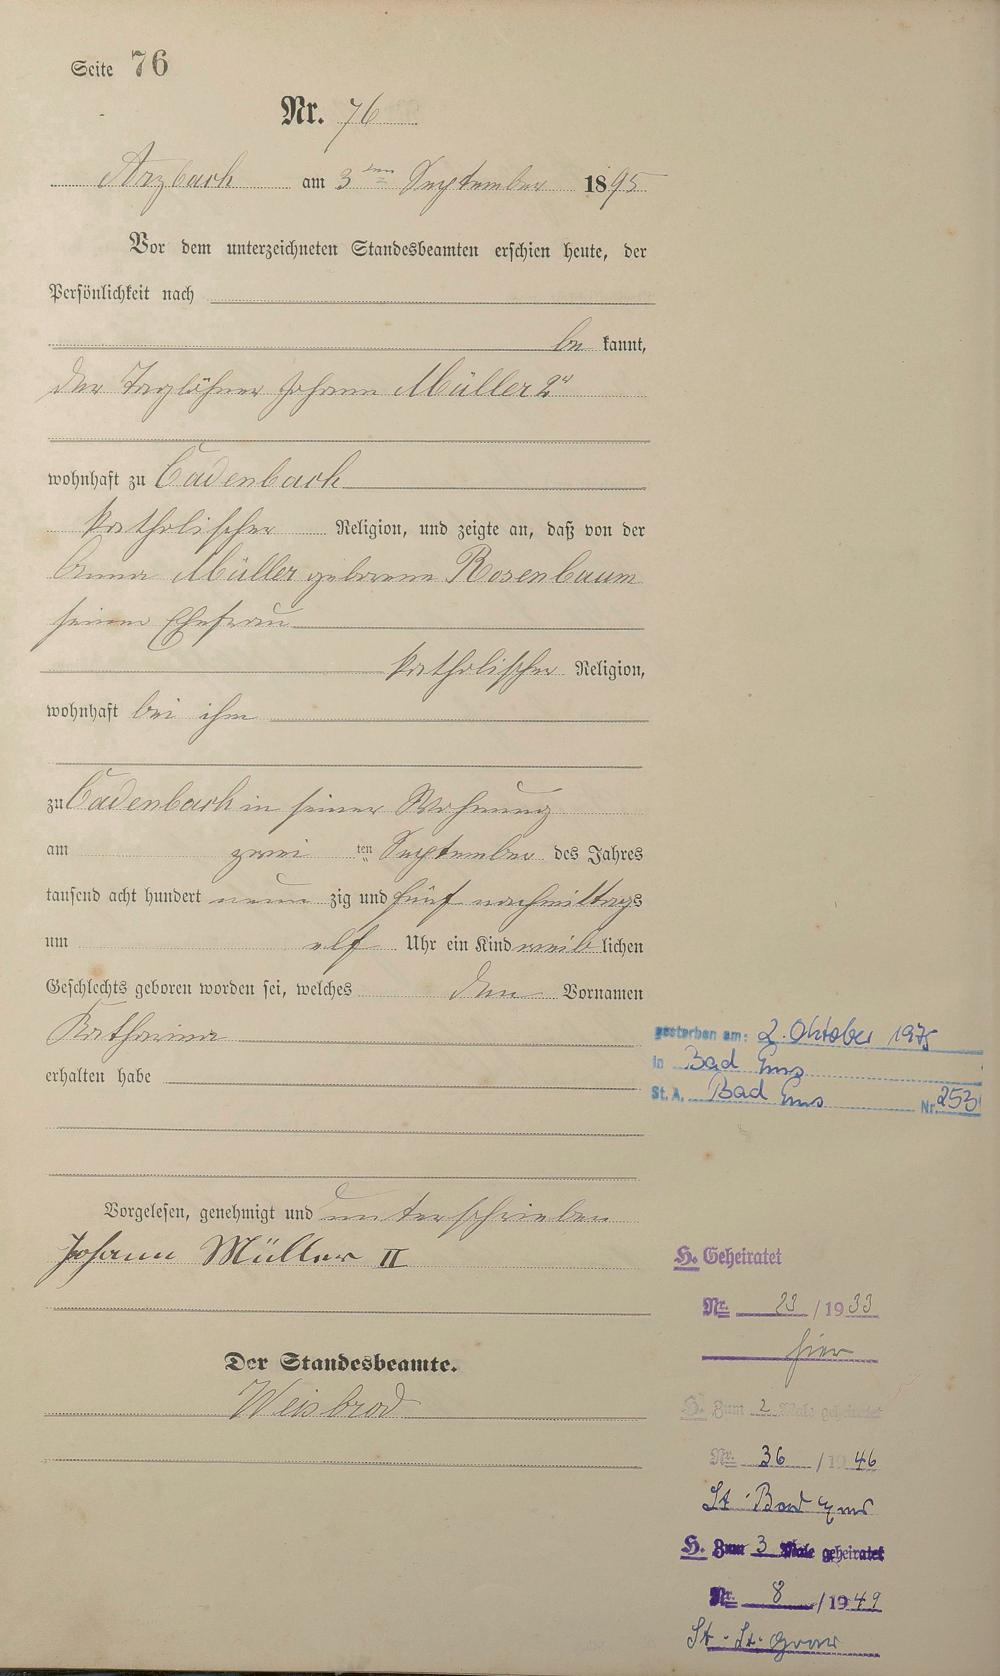 Seite 76
Nr. 76
Arzbach am 3ten September 1895
Vor dem unterzeichneten Standesbeamten erschien heute, der
Persönlichkeit nach
be kannt,
der Taglöhner Johann Müller 2r
wohnhaft zu Cadenbach
katholischer Religion, und zeigte an, daß von der
Anna Müller geborene Rosenbaum
seiner Ehefrau
katholischer Religion,
wohnhaft bei ihm
zu Cadenbach in seiner Wohnung
am zwei ten September des Jahres
tausend acht hundert neun zig und fünf nachmittags
um elf Uhr ein Kind weib lichen
Geschlechts geboren worden sei, welches den Vornamen
Katharina
erhalten habe
gestorben am: 2. Oktober 1975
in Bad Ems
St. A. Bad Ems Nr. 253
Vorgelesen, genehmigt und unterschrieben
Johann Müller II
Der Standesbeamte.
Weisbrod
H. Geheiratet
Nr. 23 / 1933
hier
H. Zum 2 Male geheiratet
Nr. 36 / 1946
St. Bad Ems
H. Zum 3 Male geheiratet
Nr. 8 / 1949
St. St. Goar